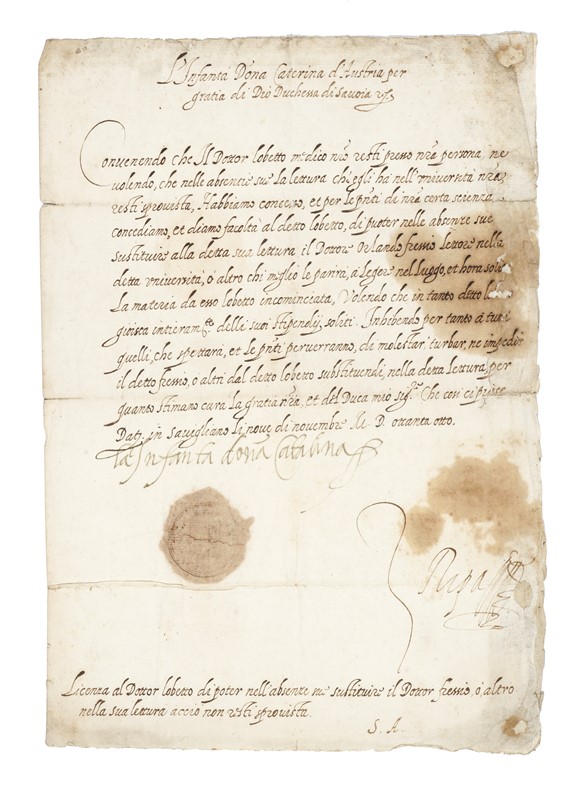 L'Infanta Dona Caterina d'Austria per
gratia di Dio Duchessa di Savoia
Convenendo che Il Dottor lobetto m.dico nro resti presso nra persona, ne
volendo, che nelle absentie sue La lettura ch'egli ha nell'vniversità nra,
resti sprovista, Habbiamo concesso, et per le pnti di nra certa scienza,
concediamo, et diamo facoltà al detto lobetto, di puoter nelle absenze sue
sustituire alla detta sua lettura il Dottore Orlando fressio Lettore nella
detta vniversità, ò altro chi meglio le parirà, à Legere nel Luogo, et hora
La materia da esso lobetto incominciata, Volendo che in tanto detto
gioisca intieram.te delli suoi stipendij soliti. Inhibendo per tanto à tutti
quelli, che spettarà, et le pnti perverranno, di molestar turbar, ne impedir
il detto fressio, ò altri dal detto lobetto substituendi, nella detta lettura, per
quanto stimano cara la gratia nra, et del Duca mio sigr. Che così ci
Dat. in Savegliano li nove di novembre M. D. ottanta otto.
la Infanta doña Catalina
Ripa
Licenza al Dottor lobetto di poter nell'absenze sue sustituire il Dottor fressio, ò altro
nella sua lettura acciò non resti sprovista.
S. A.